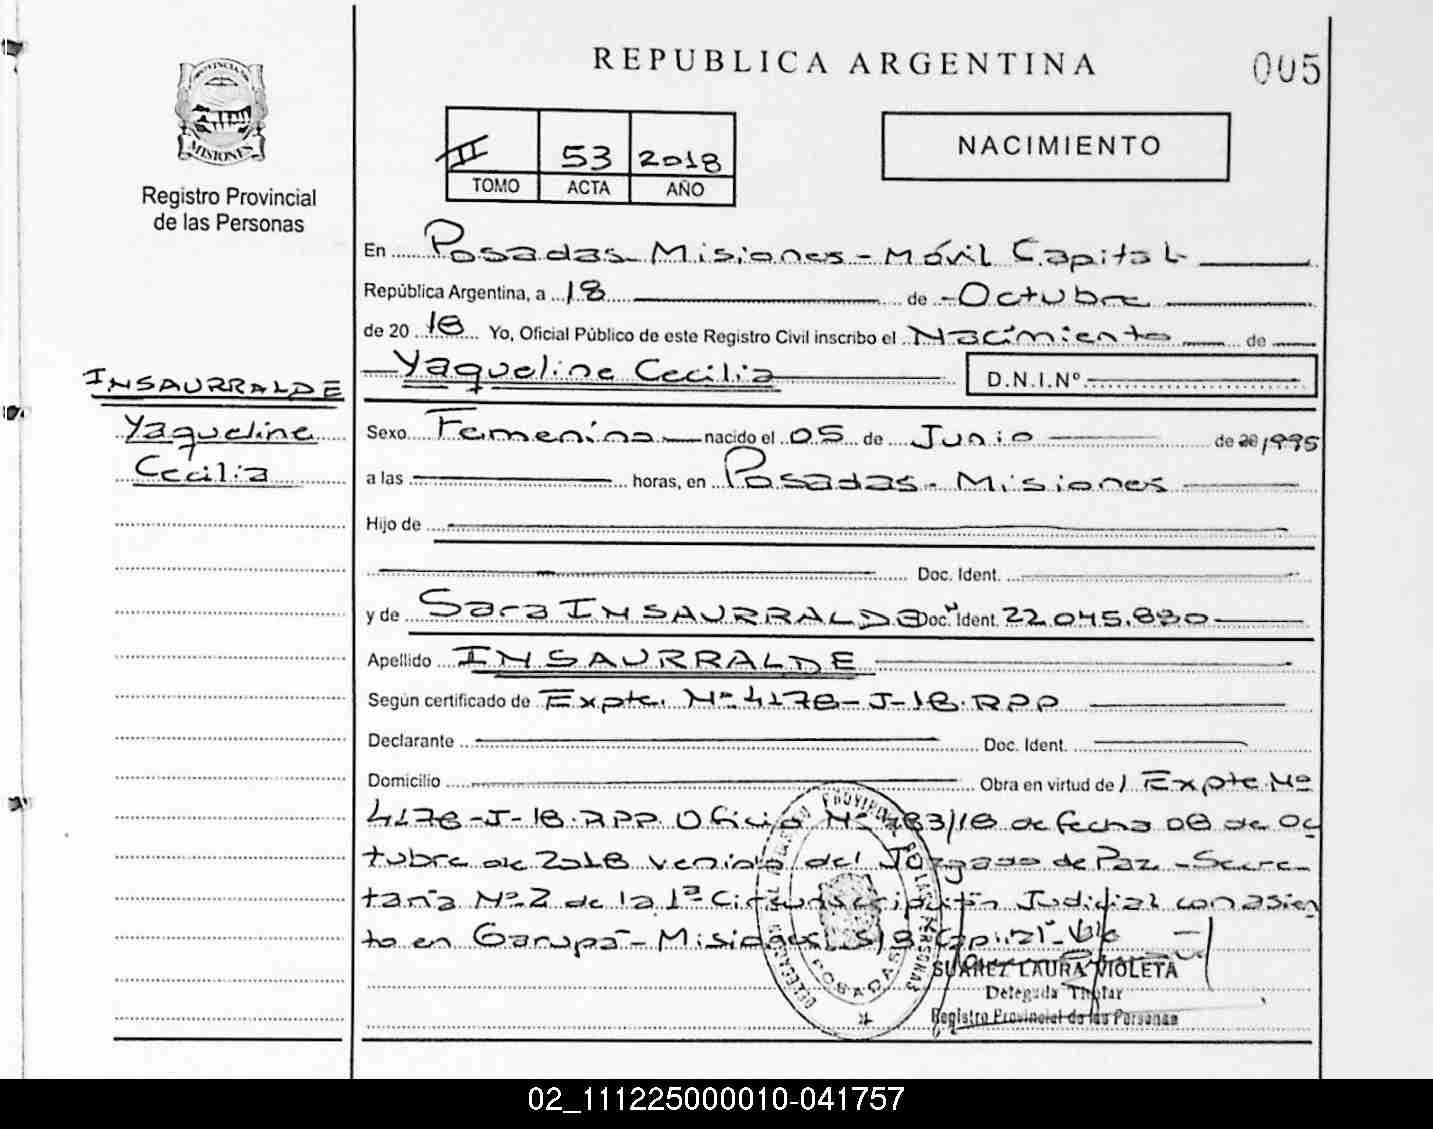 REPUBLICA ARGENTINA
005
PROVINCIA DE
MISIONES
Registro Provincial
de las Personas
II 53 2018
TOMO ACTA AÑO
NACIMIENTO
En Posadas Misiones - Móvil Capital
República Argentina, a 18 de Octubre
de 20 18 Yo, Oficial Público de este Registro Civil inscribo el Nacimiento de
Yaqueline Cecilia D.N.I.Nº
INSAURRALDE
Yaqueline
Cecilia
Sexo Femenino nacido el 05 de Junio de 20 1995
a las horas, en Posadas - Misiones
Hijo de
Doc. Ident.
y de Sara INSAURRALDE Doc. Ident. 22.045.830
Apellido INSAURRALDE
Según certificado de Expte. Nº 4178-J-18. RPP
Declarante Doc. Ident.
Domicilio Obra en virtud de Expte Nº
4178-J-18. RPP Oficio Nº 483/18 de fecha 08 de Oc
tubre de 2018 venido del Juzgado de Paz - Secre-
taria Nº2 de la 1ª Circunscripción Judicial con asien
to en Garupá - Misiones
SUAREZ LAURA VIOLETA
Delegada Titular
Registro Provincial de las Personas
POSADAS
02_111225000010-041757